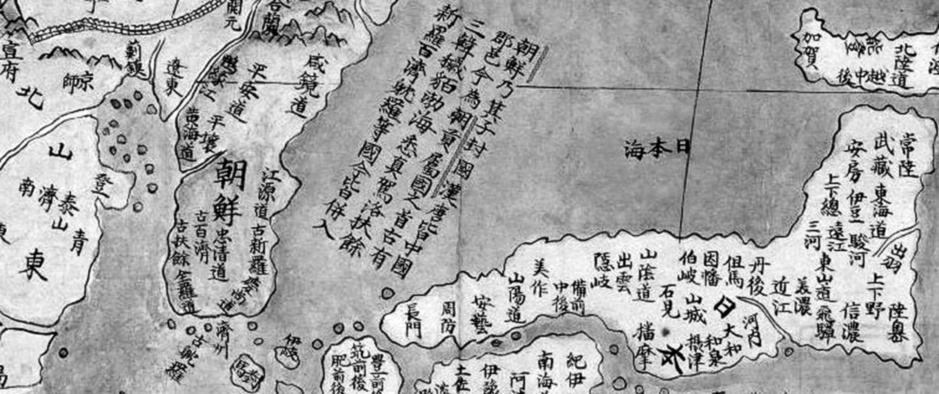 朝鮮乃箕子封國漢唐皆中國
郡邑今為朝貢屬國之首古有
三韓穢貊渤海悉真駕洛扶餘
新羅百濟耽羅等國今皆併入
日本海
朝鮮
咸鏡道
平安道
鴨綠江
平壤
黃海道
江源道
古新羅
忠清道
古百濟
古扶餘
全羅道
慶尚道
濟州
古耽羅
開元
遼東
薊鎮
京師
宣府
北
山東
登
青
泰山
濟南
北陸道
越中後
加賀
常陸
武藏
安房
東海道
伊豆
上下總
駿河
遠江
三河
出羽
陸奧
上下野
信濃
東山道
飛驒
美濃
近江
丹後
但馬
因幡
伯岐
山陰道
出雲
隱岐
石見
山城
日本
河內
大和
和泉
攝津
播摩
美作
備前
中後
山陽道
安藝
周防
長門
紀伊
南海
阿
伊
土佐
豐前後
筑前後
肥前後
伊岐
對馬